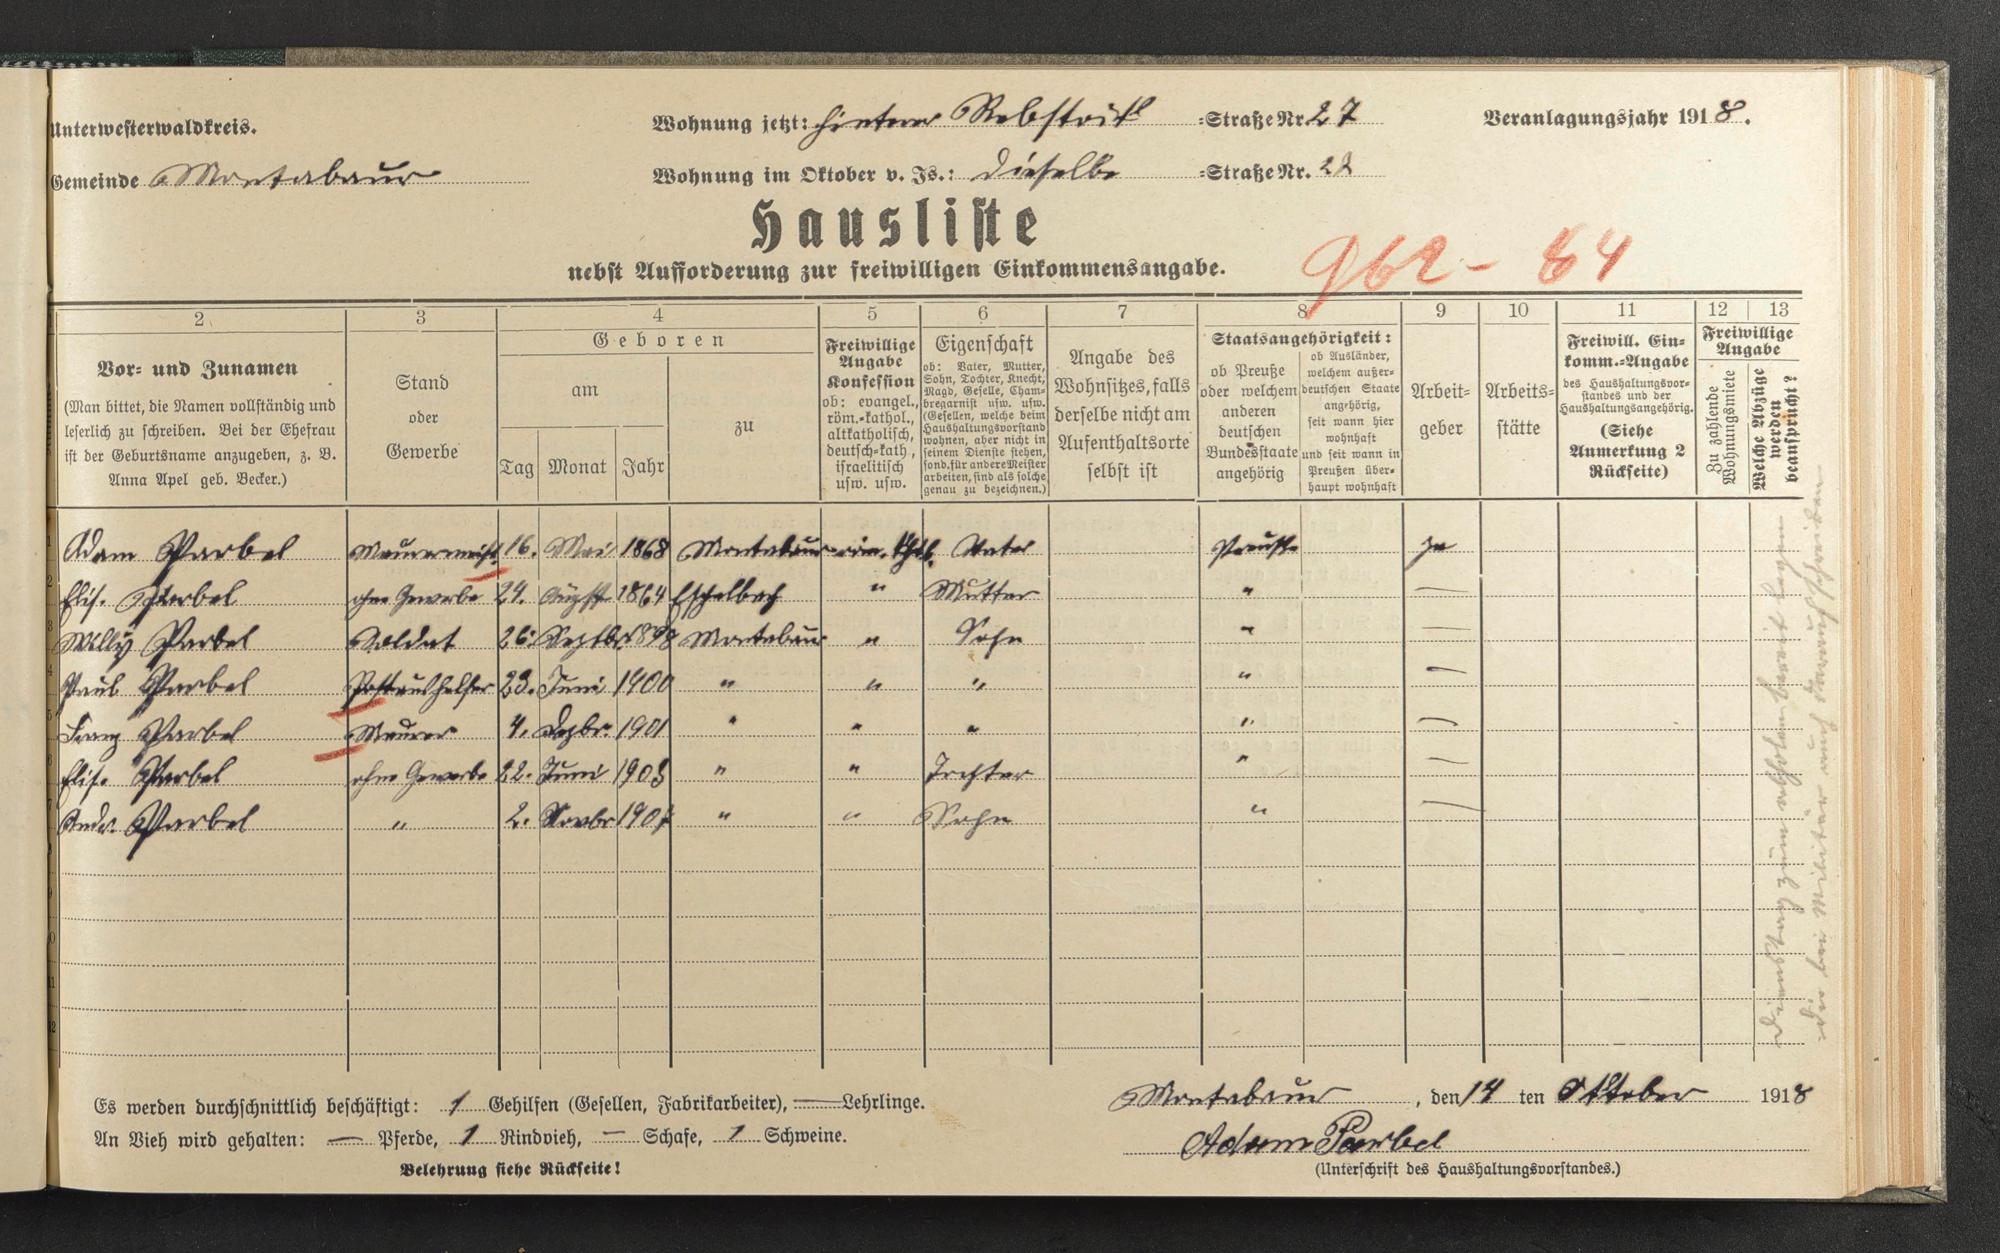 Unterwesterwaldkreis.
Wohnung jetzt: hinterer Rebstock =Straße Nr. 27
Veranlagungsjahr 1918.
Gemeinde Montabaur
Wohnung im Oktober v. Js.: dieselbe =Straße Nr.
Hausliste
nebst Aufforderung zur freiwilligen Einkommensangabe.
962 - 64
2 3 4 5 6 7 8 9 10 11 12 13
Vor- und Zunamen
(Man bittet, die Namen vollständig und
leserlich zu schreiben. Bei der Ehefrau
ist der Geburtsname anzugeben, z. B.
Anna Apel geb. Becker.)
Stand
oder
Gewerbe
Geboren
am
Tag Monat Jahr
zu
Freiwillige
Angabe
Konfession
ob: evangel.,
röm.-kathol.,
altkatholisch,
deutsch-kath.,
israelitisch
usw. usw.
Eigenschaft
ob: Vater, Mutter,
Sohn, Tochter, Knecht,
Magd, Geselle, Cham-
bregarnist usw. usw.
(Gesellen, welche beim
Haushaltungsvorstand
wohnen, aber nicht in
seinem Dienste stehen,
sond. für andere Meister
arbeiten, sind als solche
genau zu bezeichnen.)
Angabe des
Wohnsitzes, falls
derselbe nicht am
Aufenthaltsorte
selbst ist
Staatsangehörigkeit:
ob Preuße
oder welchem
anderen
deutschen
Bundesstaate
angehörig
ob Ausländer,
welchem außer-
deutschen Staate
angehörig,
seit wann hier
wohnhaft
und seit wann in
Preußen über-
haupt wohnhaft
Arbeit-
geber
Arbeits-
stätte
Freiwill. Ein-
komm.-Angabe
des Haushaltungsvor-
standes und der
Haushaltungsangehörig.
(Siehe
Anmerkung 2
Rückseite)
Freiwillige
Angabe
Zu zahlende
Wohnungsmiete
Welche Abzüge
werden
beansprucht?
1 Adam Parbel Maurermeist. 16. Mai 1868 Montabaur röm. kth. Vater Preuße ja
2 Elis. Parbel ohne Gewerbe 24. August 1864 Eschelbach " Mutter "
3 Willy Parbel Soldat 26. Septbr. 1898 Montabaur " Sohn "
4 Paul Parbel Postaushelfer 23. Juni 1900 " " " "
5 Franz Parbel Maurer 4. Dezbr. 1901 " " " "
6 Elise Parbel ohne Gewerbe 22. Juni 1903 " " Tochter "
7 Andr. Parbel " 2. Novbr " " Sohn "
8
9
10
11
12
Es werden durchschnittlich beschäftigt: 1 Gehilfen (Gesellen, Fabrikarbeiter), — Lehrlinge.
Montabaur, den 14 ten Oktober 1918
An Vieh wird gehalten: — Pferde, 1 Rindvieh, — Schafe, 1 Schweine.
Adam Parbel
Belehrung siehe Rückseite!
(Unterschrift des Haushaltungsvorstandes.)